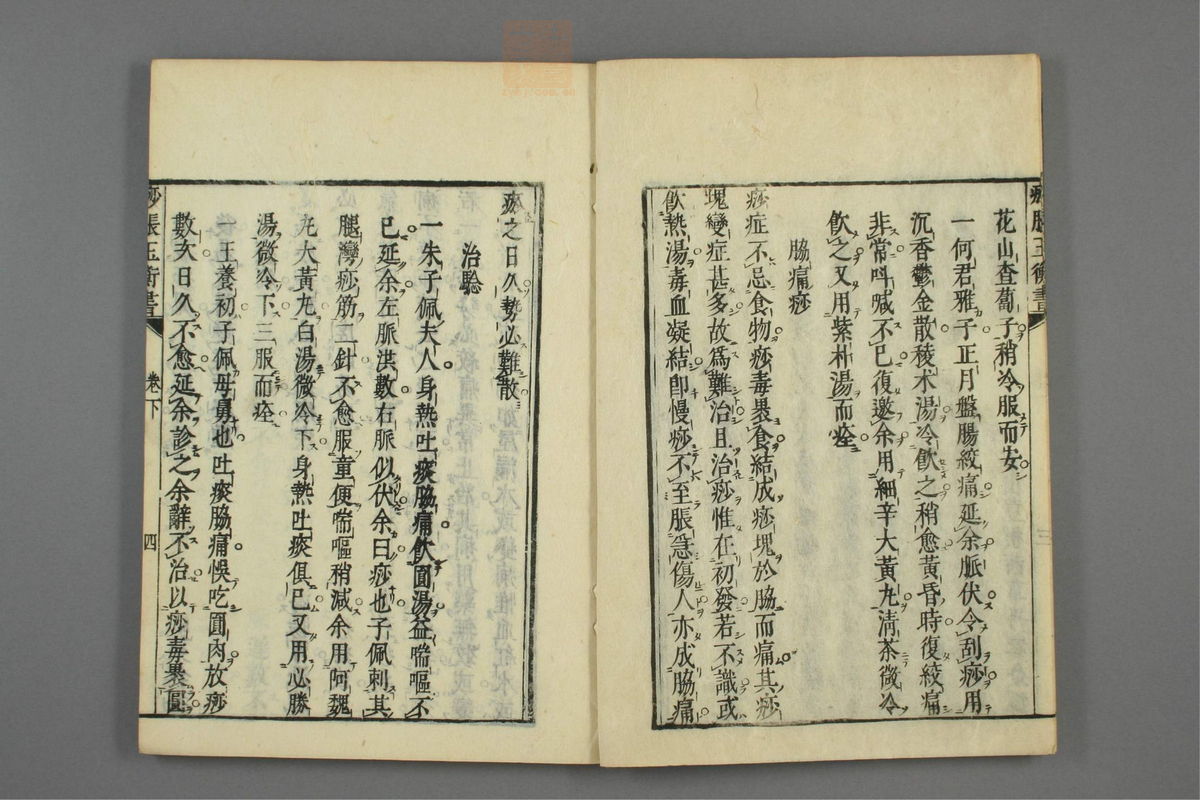 痧脹玉衡書
花山查蔔子稍冷服而安
一何君雅子正月盤腸絞痛延余脈伏令刮痧用
沉香鬱金散稜朮湯冷飲之稍愈黃昏時復絞痛
非常呌喊不已復邀余用細辛大黃丸淸茶微冷
飲之又用紫朴湯而痊
脇痛痧
痧症不忌食物痧毒裹食結成痧塊於脇而痛其痧
塊變症甚多故爲難治且治痧惟在初發若不識或
飮熱湯毒血凝結卽慢痧不至脹急傷人亦成脇痛
痧之日久勢必難散
治騐
一朱子佩夫人身熱吐痰脇痛飲圓湯益喘嘔不
已延余左脈洪數右脈似伏余曰痧也子佩刺其
腿灣痧筋三針不愈服童便喘嘔稍減余用阿魏
丸大黃丸白湯微冷下身熱吐痰俱已又用必勝
湯微冷下三服而痊
一王養初子佩母舅也吐痰脇痛悞吃圓肉放痧
數次日久不愈延余診之余辭不治以痧毒裹圓
痧脹玉衡書 卷下 四